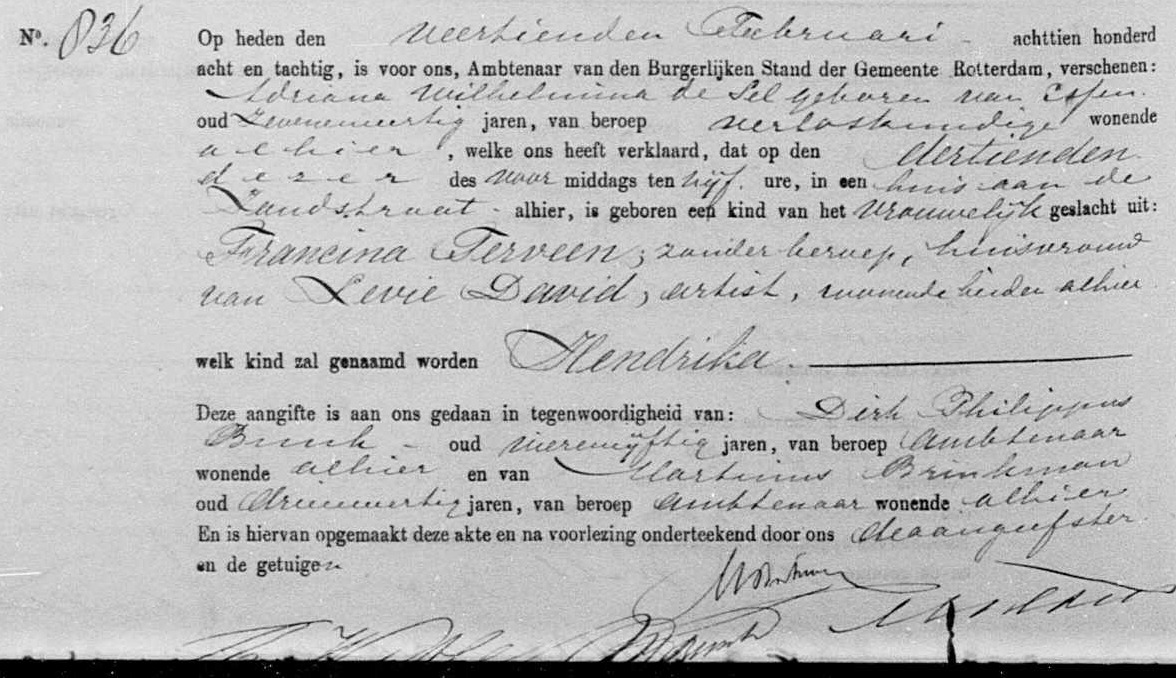 No. 836 Op heden den veertienden Februari - achttien honderd
acht en tachtig, is voor ons, Ambtenaar van den Burgerlijken Stand der Gemeente Rotterdam, verschenen:
Adriana Wilhelmina de Sel geboren van Essen.
oud zevenenveertig jaren, van beroep verloskundige wonende
alhier, welke ons heeft verklaard, dat op den dertienden
dezer des voormiddags ten vijf ure, in een huis aan de
Zandstraat - alhier, is geboren een kind van het vrouwelijk geslacht uit:
Francina Terveen, zonder beroep, huisvrouw
van Levie David, artist, wonende beiden alhier
welk kind zal genaamd worden Hendrika
Deze aangifte is aan ons gedaan in tegenwoordigheid van: Dirk Philippus
oud vierenvijftig jaren, van beroep ambtenaar
wonende alhier en van Martinus Brinkman
oud drieenveertig jaren, van beroep ambtenaar wonende alhier
En is hiervan opgemaakt deze akte en na voorlezing onderteekend door ons de aangeefster
en de getuigen